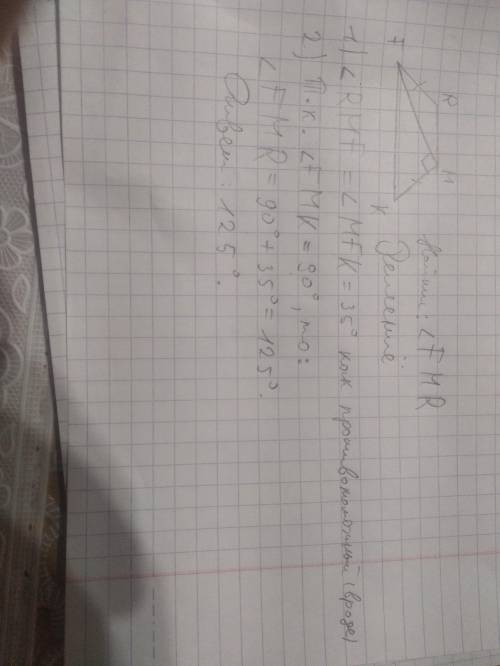 Найти: ∠FMR
R
M
F
K
Решение
1) ∠RMF = ∠MFK = 35° как противоположный (вроде)
2) Т.к. ∠FMK = 90°, то:
∠FMR = 90° + 35° = 125°.
Ответ: 125°.